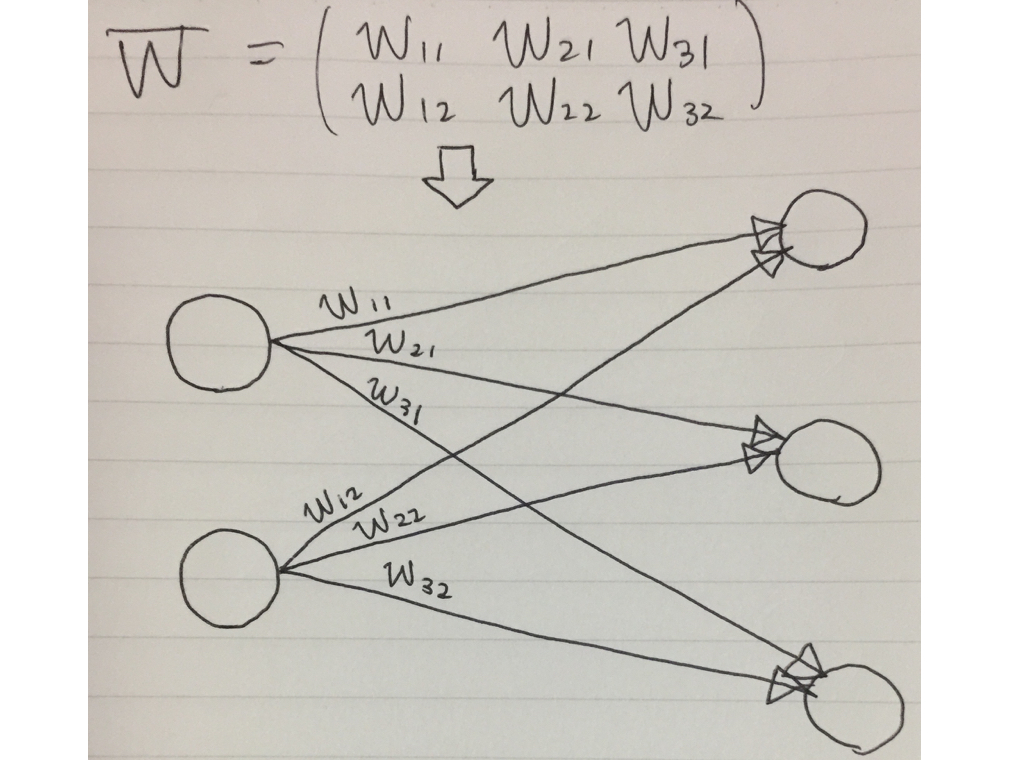 W = ( W11 W21 W31
W12 W22 W32 )
W11
W21
W31
W12
W22
W32